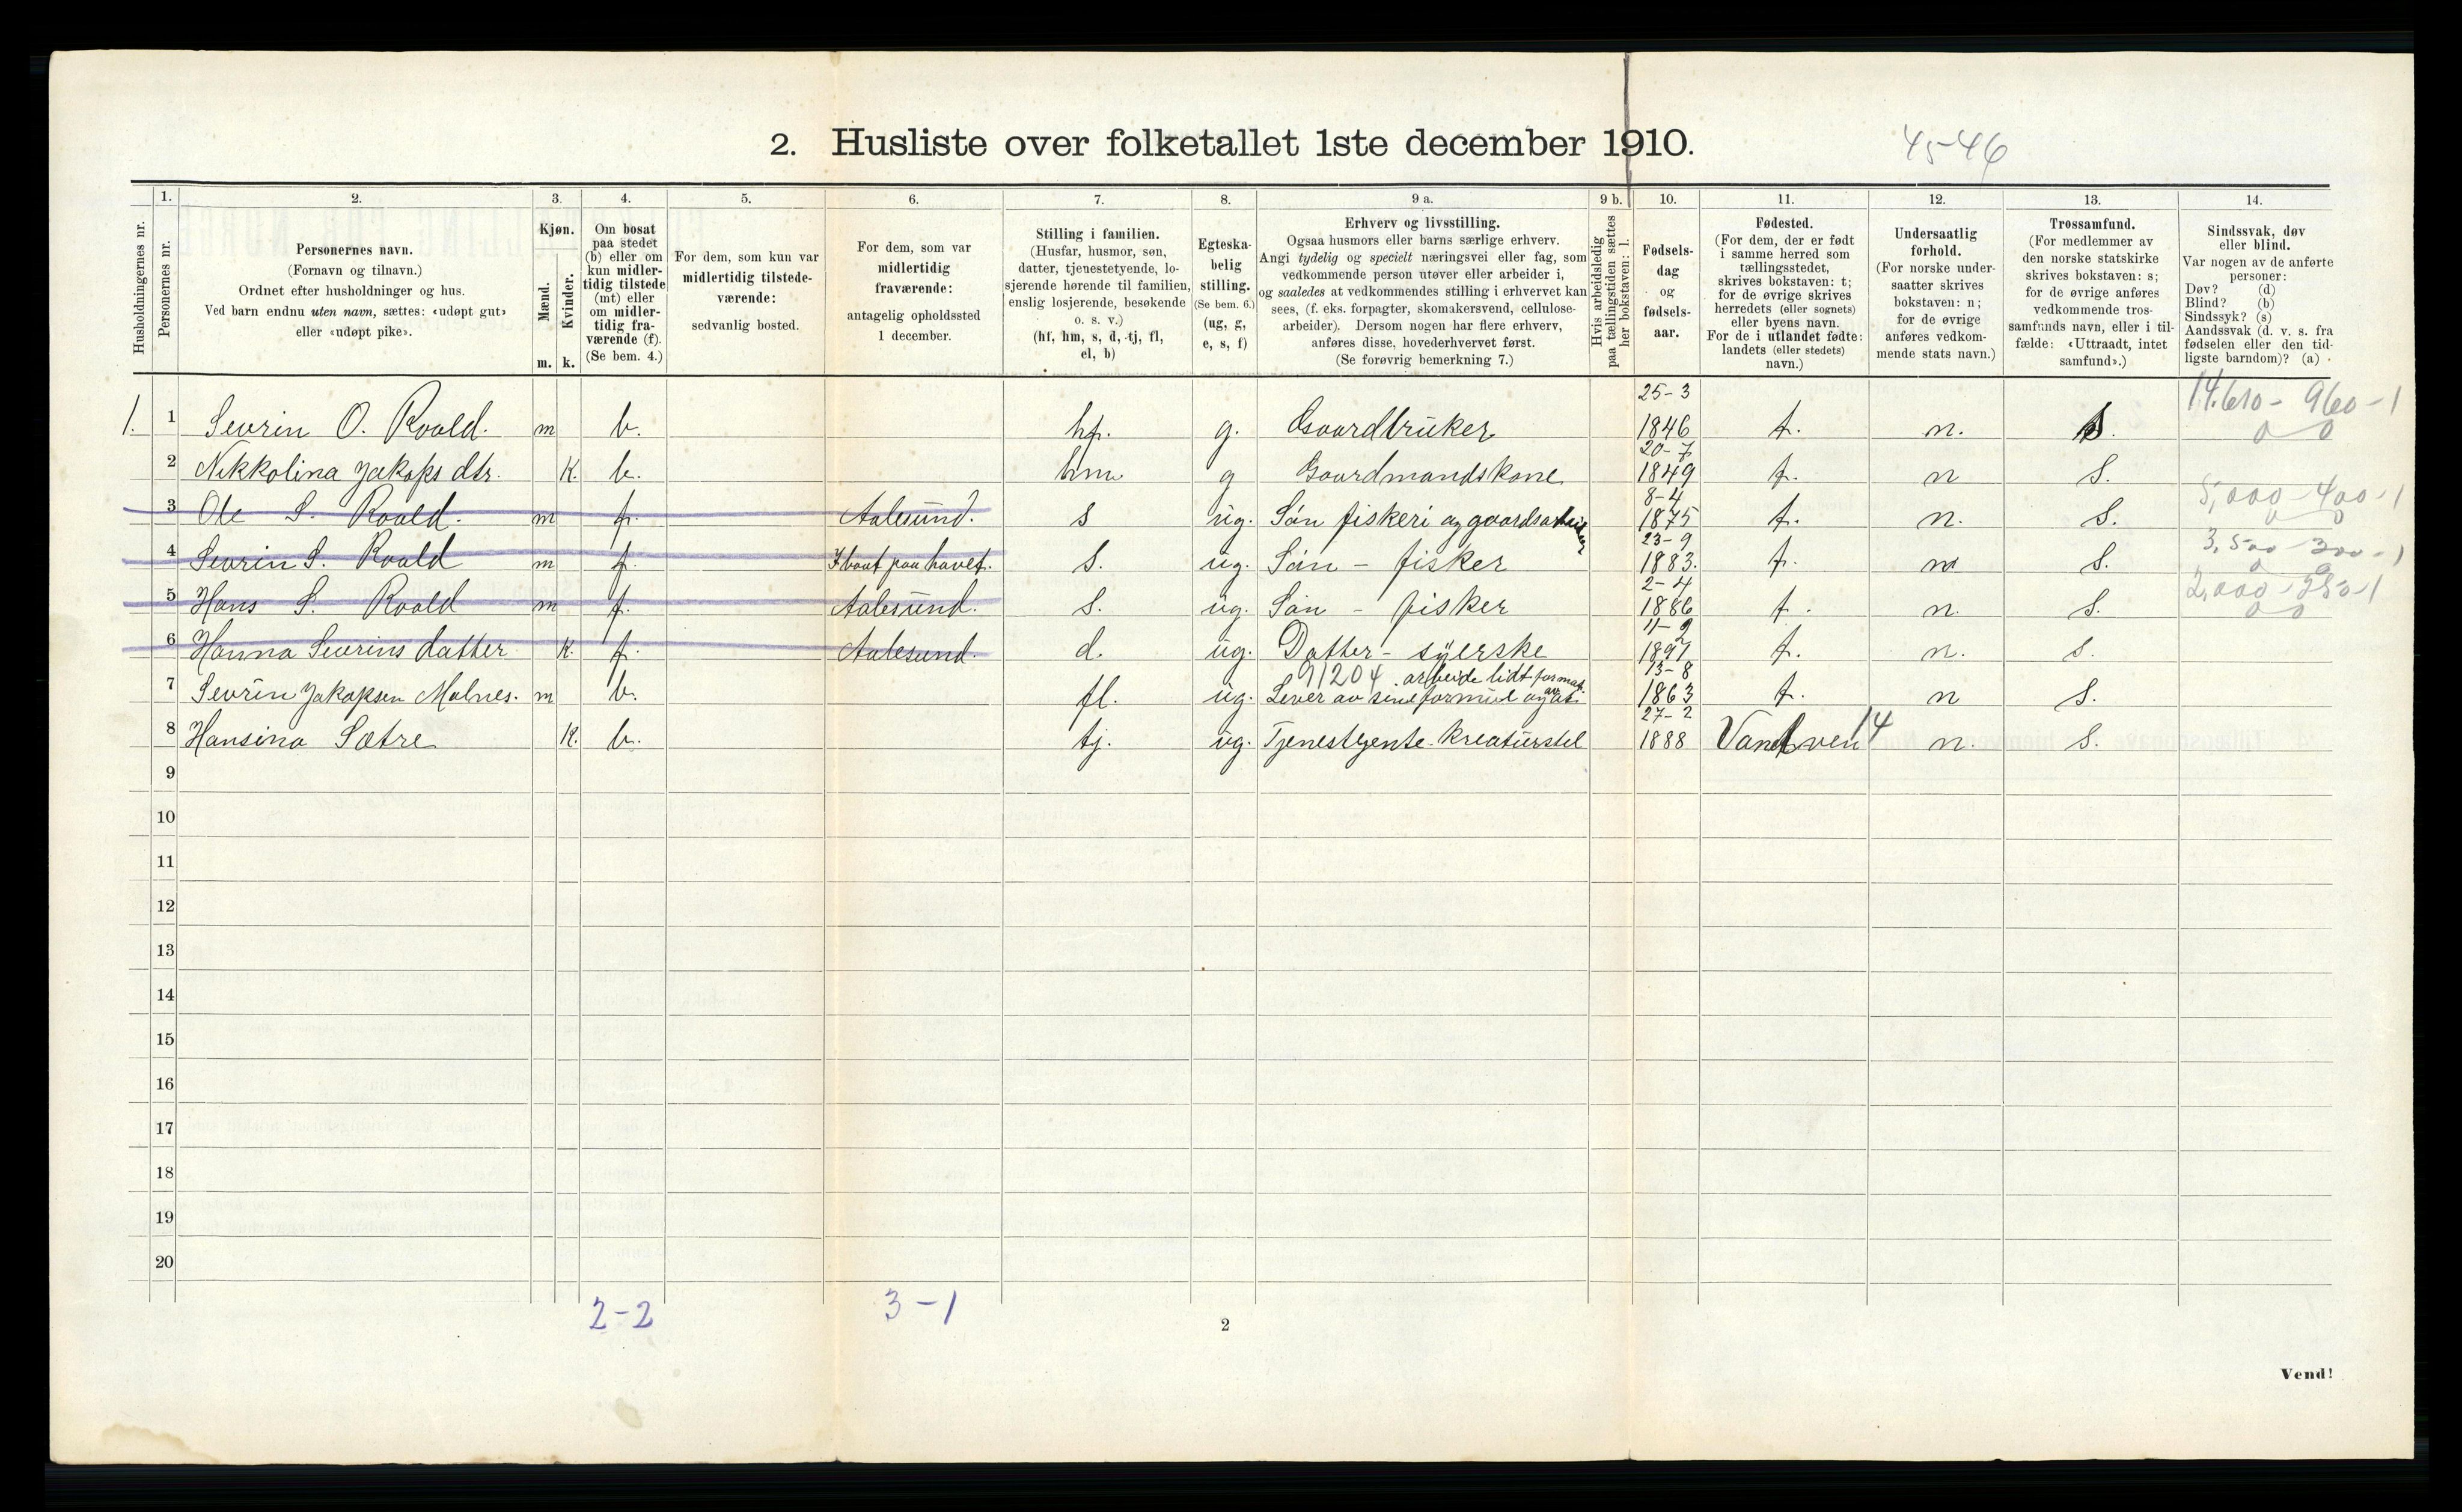 2. Husliste over folketallet 1ste december 1910.
45-46
Husholdningernes nr.
1.
Personernes nr.
2.
Personernes navn.
(Fornavn og tilnavn.)
Ordnet efter husholdninger og hus.
Ved barn endnu uten navn, sættes: «udøpt gut»
eller «udøpt pike».
3.
Kjøn.
Mænd.
Kvinder.
m. k.
4.
Om bosat
paa stedet
(b) eller om
kun midler-
tidig tilstede
(mt) eller
om midler-
tidig fra-
værende (f).
(Se bem. 4.)
5.
For dem, som kun var
midlertidig tilstede-
værende:
sedvanlig bosted.
6.
For dem, som var
midlertidig
fraværende:
antagelig opholdssted
1 december.
7.
Stilling i familien.
(Husfar, husmor, søn,
datter, tjenestetyende, lo-
sjerende hørende til familien,
enslig losjerende, besøkende
o. s. v.)
(hf, hm, s, d, tj, fl,
el, b)
8.
Egteska-
belig
stilling.
(Se bem. 6.)
(ug, g,
e, s, f)
9 a.
Erhverv og livsstilling.
Ogsaa husmors eller barns særlige erhverv.
Angi tydelig og specielt næringsvei eller fag, som
vedkommende person utøver eller arbeider i,
og saaledes at vedkommendes stilling i erhvervet kan
sees, (f. eks. forpagter, skomakersvend, cellulose-
arbeider). Dersom nogen har flere erhverv,
anføres disse, hovederhvervet først.
(Se forøvrig bemerkning 7.)
9 b.
Hvis arbeidsledig
paa tællingstiden sættes
her bokstaven: l.
10.
Fødsels-
dag
og
fødsels-
aar.
11.
Fødested.
(For dem, der er født
i samme herred som
tællingsstedet,
skrives bokstaven: t;
for de øvrige skrives
herredets (eller sognets)
eller byens navn.
For de i utlandet fødte:
landets (eller stedets)
navn.)
12.
Undersaatlig
forhold.
(For norske under-
saatter skrives
bokstaven: n;
for de øvrige
anføres vedkom-
mende stats navn.)
13.
Trossamfund.
(For medlemmer av
den norske statskirke
skrives bokstaven: s;
for de øvrige anføres
vedkommende tros-
samfunds navn, eller i til-
fælde: «Uttraadt, intet
samfund».)
14.
Sindssvak, døv
eller blind.
Var nogen av de anførte
personer:
Døv? (d)
Blind? (b)
Sindssyk? (s)
Aandssvak (d. v. s. fra
fødselen eller den tid-
ligste barndom)? (a)
1. 1 Sevrin O. Roald. m b. hf. g. Gaardbruker 25-3 1846 t. n. S. 14.610 - 960-1 0 0
2 Nikkolina Jakops dtr. K. b. hm g Gaardmandskone 20-7 1849 t. n S.
3 Ole S. Roald. m f. Aalesund. s ug. Søn fiskeri og gaardsarbeider 8-4 1875 t. n. S. 5,000-400-1 0 0
4 Sevrin S. Roald m f. I baat paa havet. S. ug. Søn - fisker 23-9 1883. t. n S. 3,500-300-1 0 0
5 Hans S. Roald m f. Aalesund. S. ug. Søn - fisker 2-4 1886 t. n. S. 2,000-250-1 0 0
6 Hanna Sevrins datter K. f. Aalesund. d. ug. Datter - syerske 11-2 1891 t. n. S.
91204 . arbeide lidt for mat.
7 Sevrin Jakopsen Molnes. m b. fl. ug. Lever av sine formue og 13-8 1863 t. n S.
8 Hansina Sætre K. b. tj. ug. Tjenestgente. Kreaturstel 27-2 1888 Vanelven 14 n. S.
9
10
11
12
13
14
15
16
17
18
19
20
2-2
3-1
2
Vend!